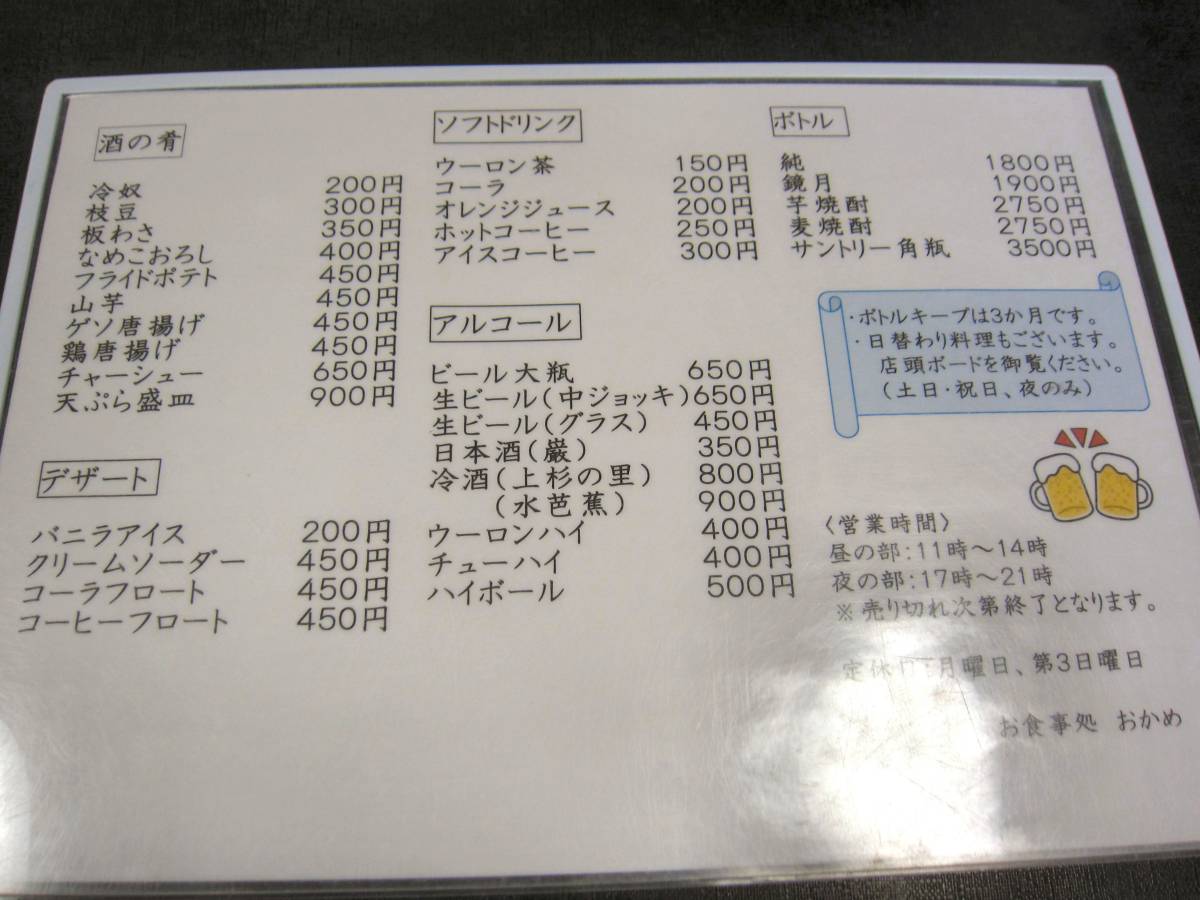 酒の肴
冷奴 200円
枝豆 300円
板わさ 350円
なめこおろし 400円
フライドポテト 450円
山芋 450円
ゲソ唐揚げ 450円
鶏唐揚げ 450円
チャーシュー 650円
天ぷら盛皿 900円
デザート
バニラアイス 200円
クリームソーダー 450円
コーラフロート 450円
コーヒーフロート 450円
ソフトドリンク
ウーロン茶 150円
コーラ 200円
オレンジジュース 200円
ホットコーヒー 250円
アイスコーヒー 300円
アルコール
ビール大瓶 650円
生ビール(中ジョッキ) 650円
生ビール(グラス) 450円
日本酒(巌) 350円
冷酒(上杉の里) 800円
(水芭蕉) 900円
ウーロンハイ 400円
チューハイ 400円
ハイボール 500円
ボトル
純 1800円
鏡月 1900円
芋焼酎 2750円
麦焼酎 2750円
サントリー角瓶 3500円
・ボトルキープは3か月です。
・日替わり料理もございます。
店頭ボードを御覧ください。
(土日・祝日、夜のみ)
〈営業時間〉
昼の部:11時～14時
夜の部:17時～21時
※売り切れ次第終了となります。
定休日:月曜日、第3日曜日
お食事処 おかめ